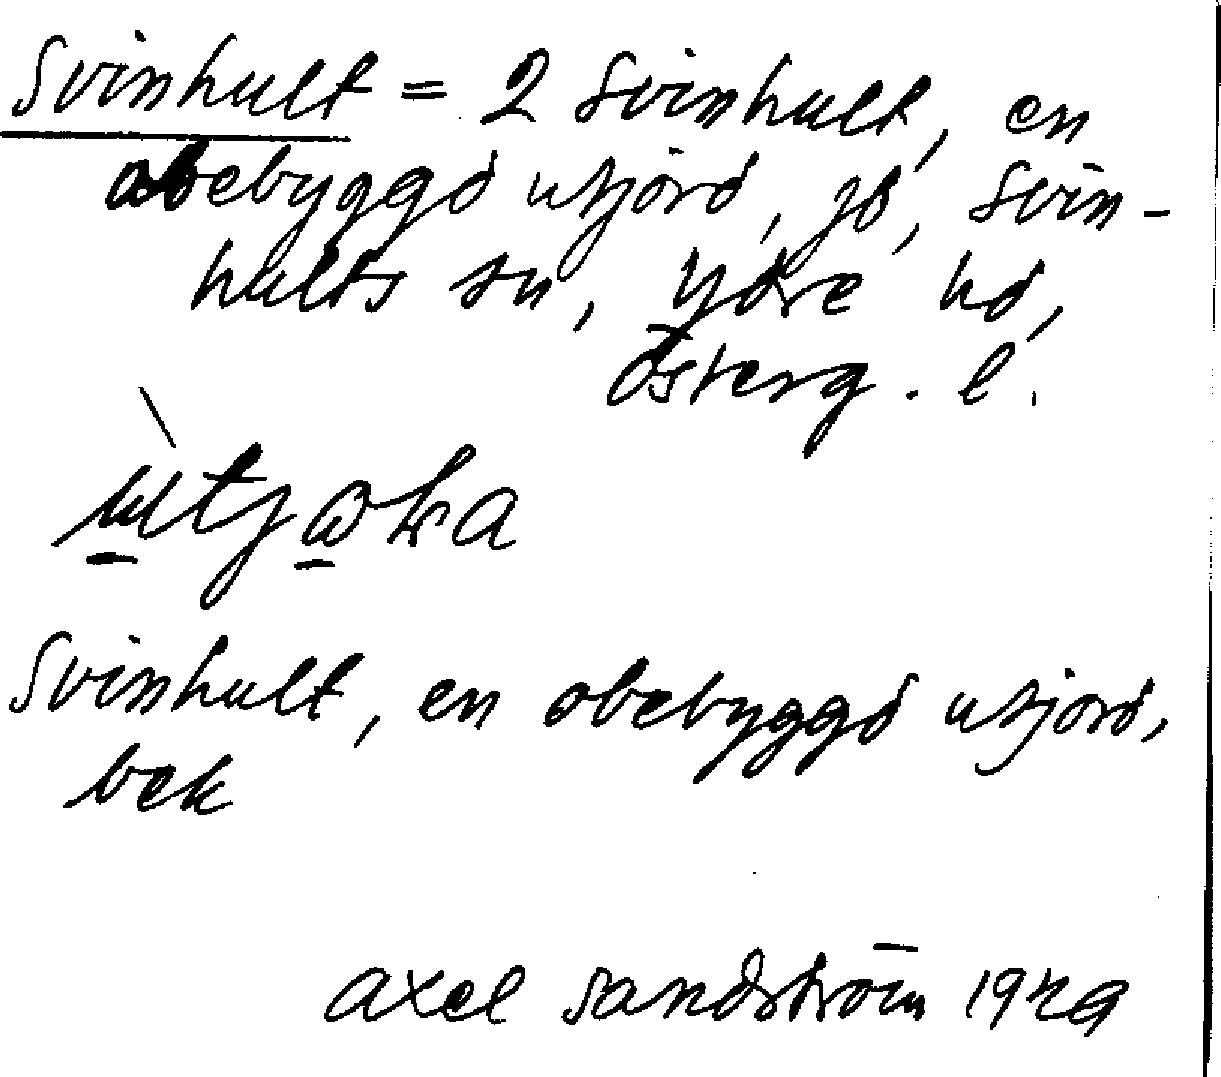 Svinhult = 2 Svinhult, en
obebyggd utjord, jb, Svin-
hults sn, Ydre hd,
Österg. l.
Svinhult, en obebyggd utjord,
bek
Axel Sandström 1929